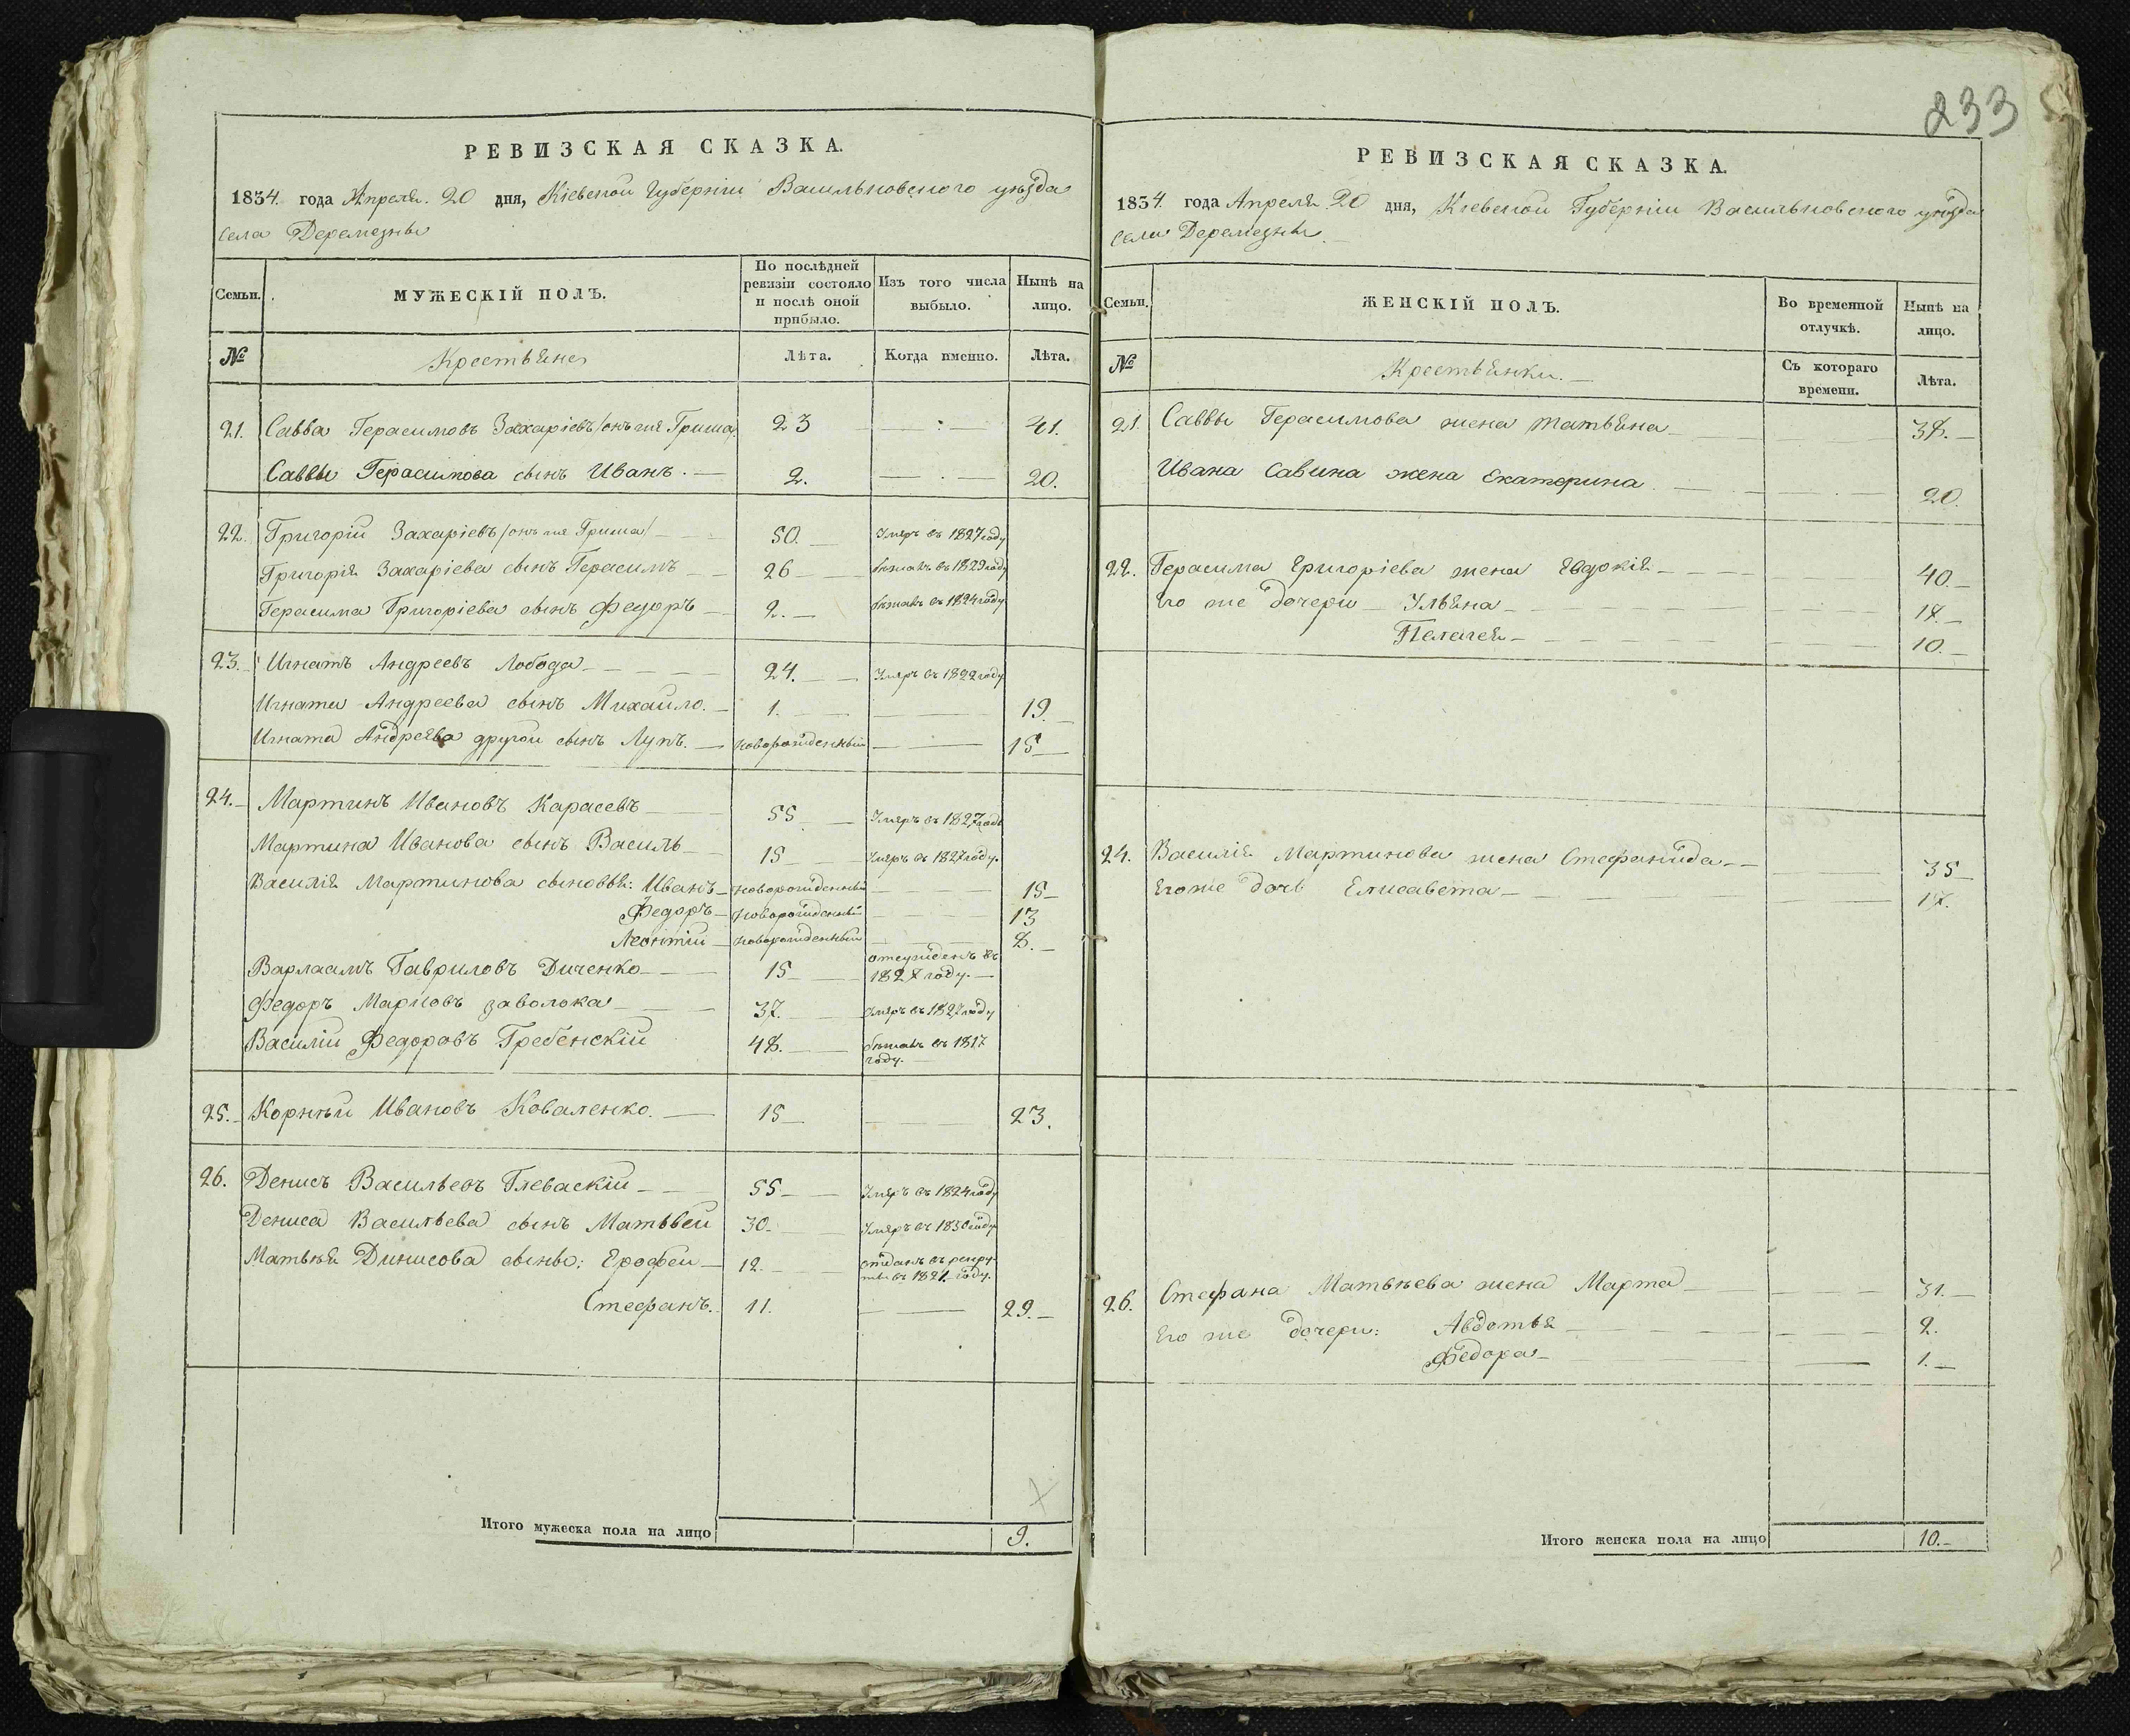 233
РЕВИЗСКАЯ СКАЗКА.
1834. года Апреля. 20 дня, Кіевской Губерніи Васильковского уѣзда
села Деремезны
Семьи.
МУЖЕСКІЙ ПОЛЪ.
По послѣдней ревизіи состояло и послѣ оной прибыло.
Изъ того числа выбыло.
Нынѣ на лицо.
№
Крестьяне
Лѣта.
Когда именно.
Лѣта.
21. Савва Герасимовъ Захаріевъ /онъ же Гриша/ 23 41.
Саввы Герасимова сынъ Иванъ. 2. 20.
22. Григорій Захаріевъ /онъ же Гриша/ 50. Умеръ въ 1827 году
Григорія Захаріева сынъ Герасимъ 26 бѣжавъ въ 1829 году
Герасима Григоріева сынъ Федоръ 2. бѣжавъ въ 1824 году
23. Игнатъ Андреевъ Лобода 24. Умеръ въ 1822 году
Игната Андреева сынъ Михайло. 1. 19.
Игната Андреева другой сынъ Лупъ. новорожденный 15
24. Мартинъ Ивановъ Карасевъ 55 Умеръ въ 1827 годѣ
Мартина Иванова сынъ Василь 15 Умеръ въ 1827 году.
Василія Мартинова сыновья: Иванъ новорожденный 15
Федоръ новорожденный 13
Леонтій новорожденный 8.
Варлаамъ Гавриловъ Диченко 15 отсужденъ въ 1828 году.
Федоръ Марковъ заволока 37. Умеръ въ 1827 году
Василій Федоровъ Гребенскій 48. бѣжавъ въ 1817 году.
25. Корнѣй Ивановъ Коваленко. 15 23.
26. Денисъ Васильевъ Глеваскій 55 Умеръ въ 1824 году
Дениса Васильева сынъ Матвѣй 30. Умеръ въ 1830 году
Матвѣя Динисова сынъ: Ерофей 12. отданъ въ рекруты въ 1821 году.
Стефанъ. 11. 29.
Итого мужеска пола на лицо 9.
РЕВИЗСКАЯ СКАЗКА.
1834. года Апреля 20 дня, Кіевской Губерніи Васильковского уѣзда
села Деремезны
Семьи.
ЖЕНСКІЙ ПОЛЪ.
Во временной отлучкѣ.
Нынѣ на лицо.
№
Крестьянки.
Съ котораго времени.
Лѣта.
21. Саввы Герасимова жена Татьяна 38.
Ивана Савина жена Екатерина 20.
22. Герасима Григоріева жена Евдокія 40.
Его же дочери Ульяна 18.
Пелагея 10.
24. Василія Мартинова жена Стефанида 35
Его же дочь Елисавета 17.
26. Стефана Матвѣева жена Марта 31.
Его же дочери: Авдотья 2.
Федора 1.
Итого женска пола на лицо 10.